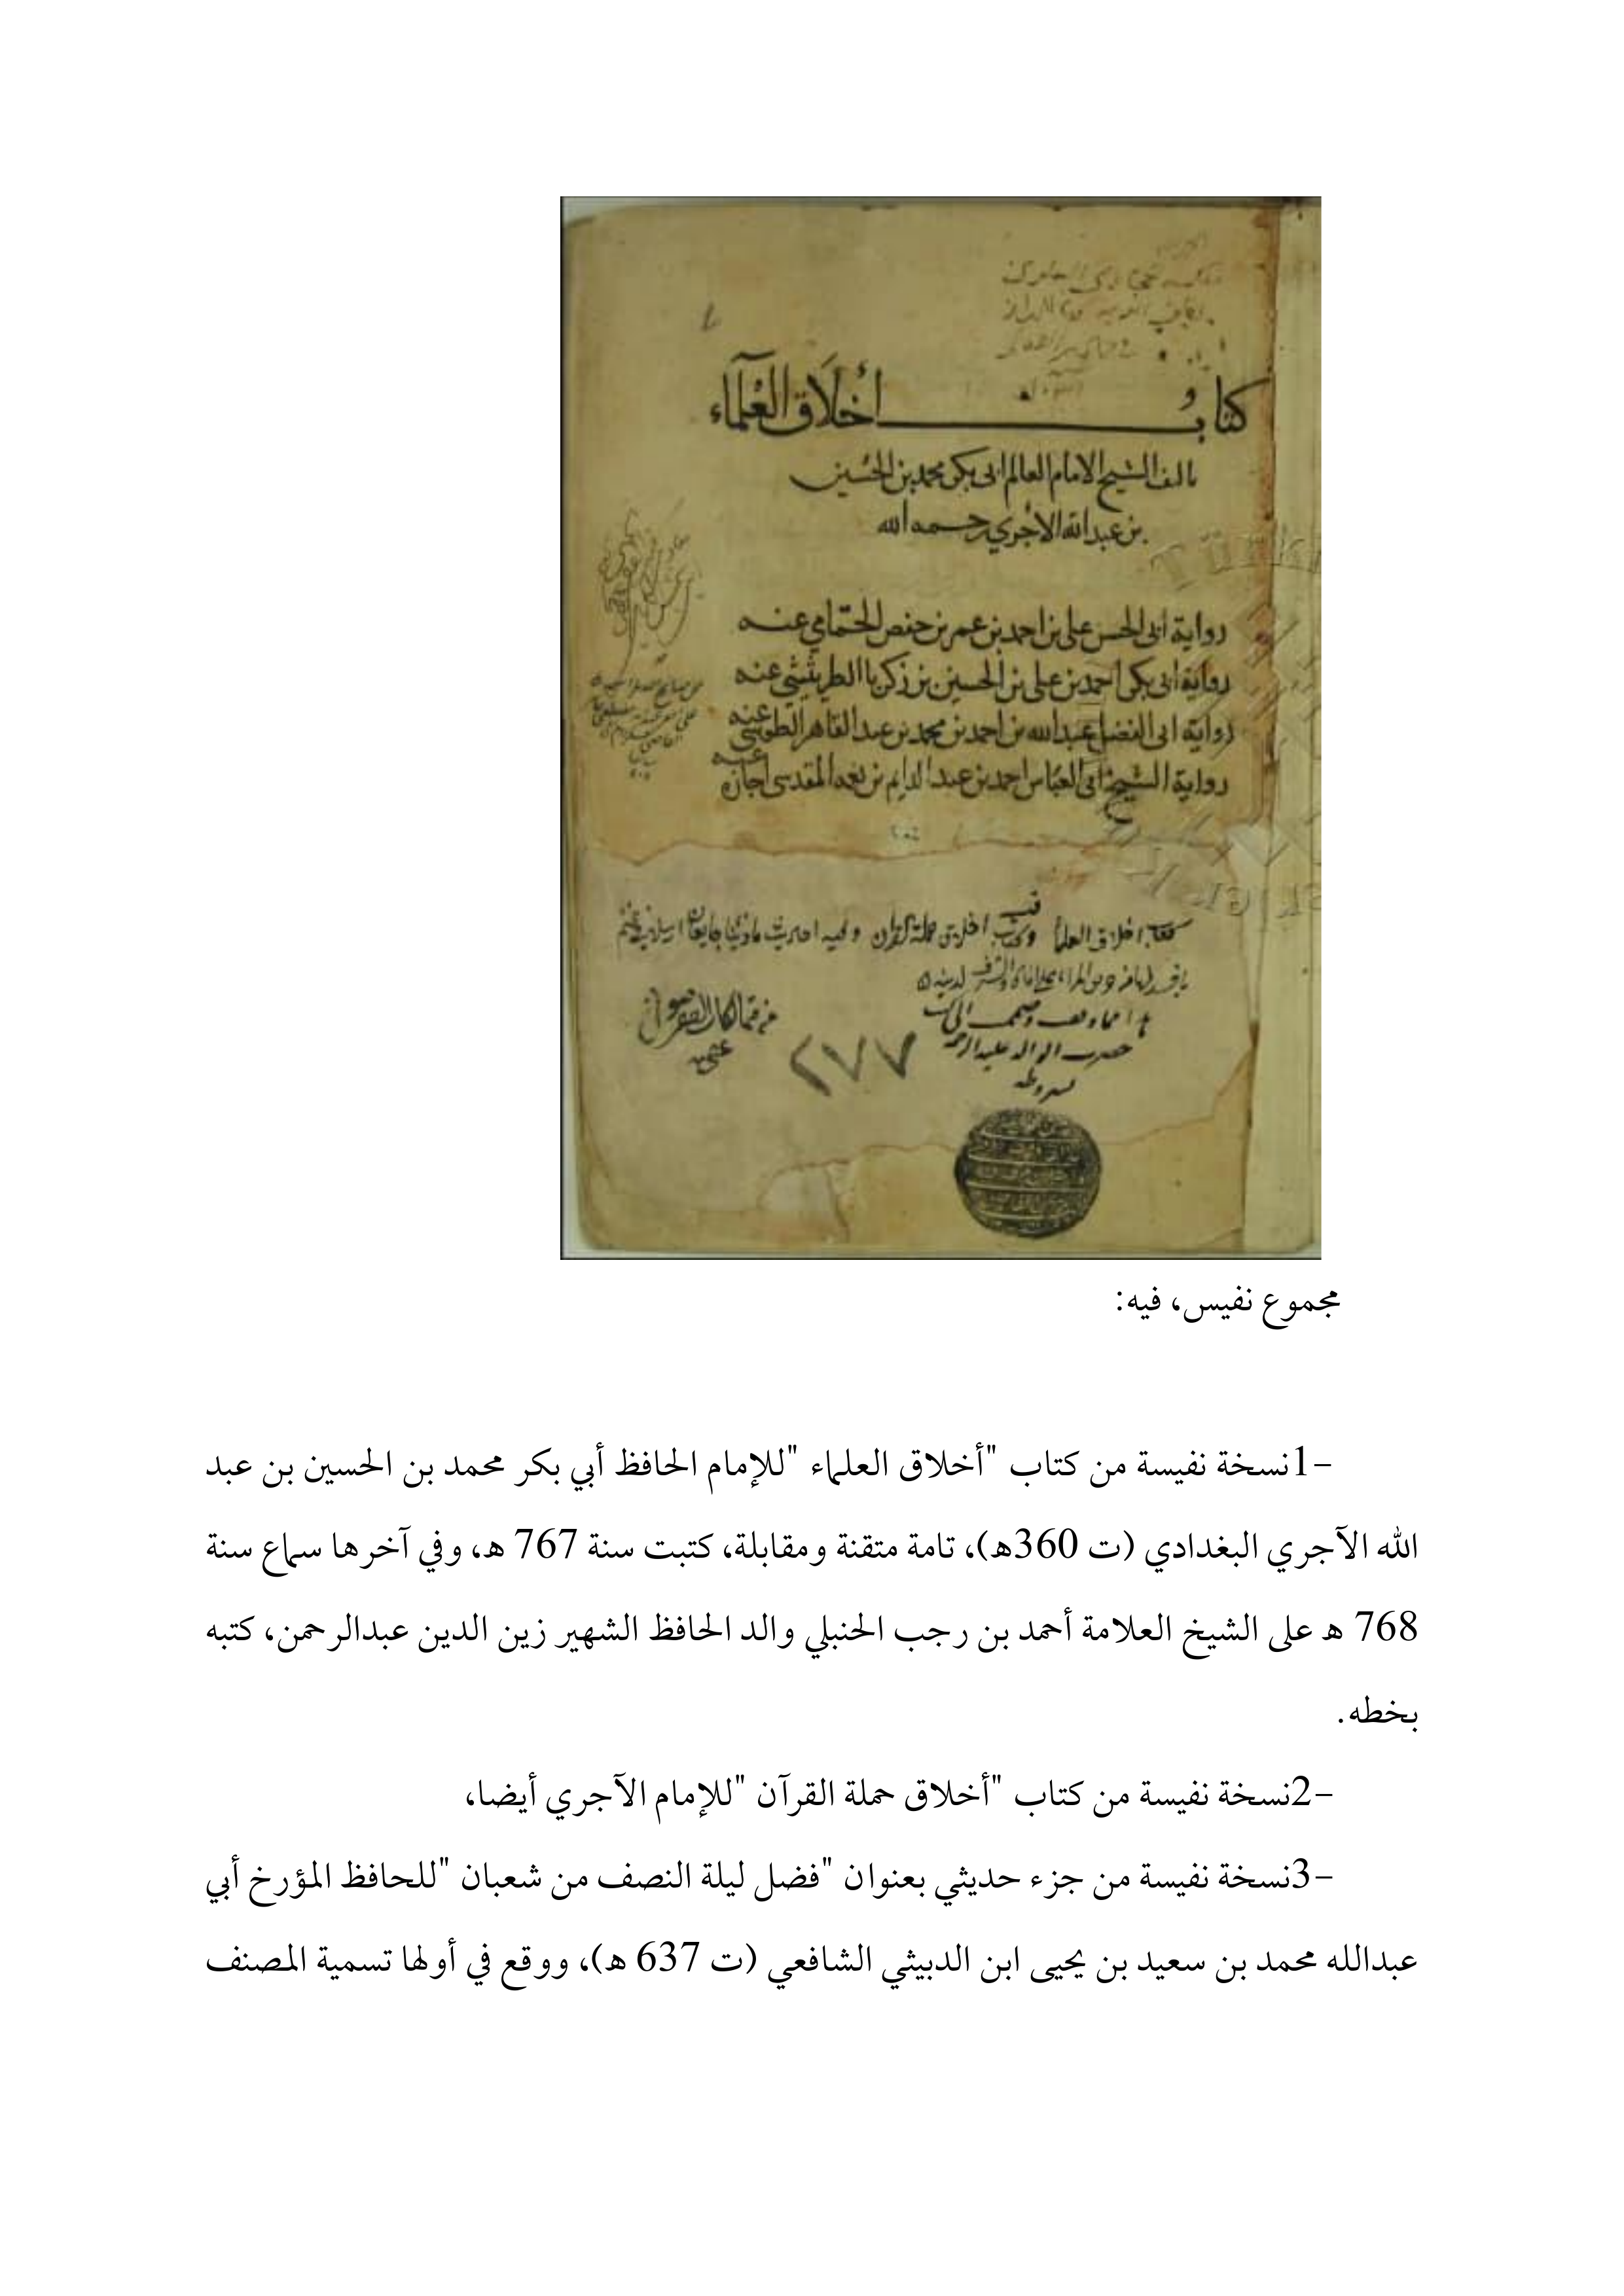 كتاب أخلاق العلماء
تالىف الشيخ الامام العالم ابى بكر محمد بن الحُسَين
بن عبد الله الاجُري رحمه الله
رواية ابى الحسن على بن احمد بن عمر بن حفص الحمّامي عنه
رواية ابى بكر احمد بن على بن الحسين بن زكريا الطريثيثي عنه
رواية ابى الفضل عبد الله بن احمد بن محمد بن عبد القاهر الطوسى عنه
رواية الشيخ ابى العباس احمد بن عبد الدايم بن نعمه المقدسى اجازة عنه
كتاب اخلاق العلما وكتاب اخلاق حملة القران وفيه
٢٧٧
مجموع نفيس، فيه:
-1نسخة نفيسة من كتاب "أخلاق العلماء "للإمام الحافظ أبي بكر محمد بن الحسين بن عبد
الله الآجري البغدادي (ت 360ه)، تامة متقنة ومقابلة، كتبت سنة 767 ه، وفي آخرها سماع سنة
768 ه على الشيخ العلامة أحمد بن رجب الحنبلي والد الحافظ الشهير زين الدين عبدالرحمن، كتبه
بخطه.
-2نسخة نفيسة من كتاب "أخلاق حملة القرآن "للإمام الآجري أيضا،
-3نسخة نفيسة من جزء حديثي بعنوان "فضل ليلة النصف من شعبان "للحافظ المؤرخ أبي
عبدالله محمد بن سعيد بن يحيى ابن الدبيثي الشافعي (ت 637 ه)، ووقع في أولها تسمية المصنف